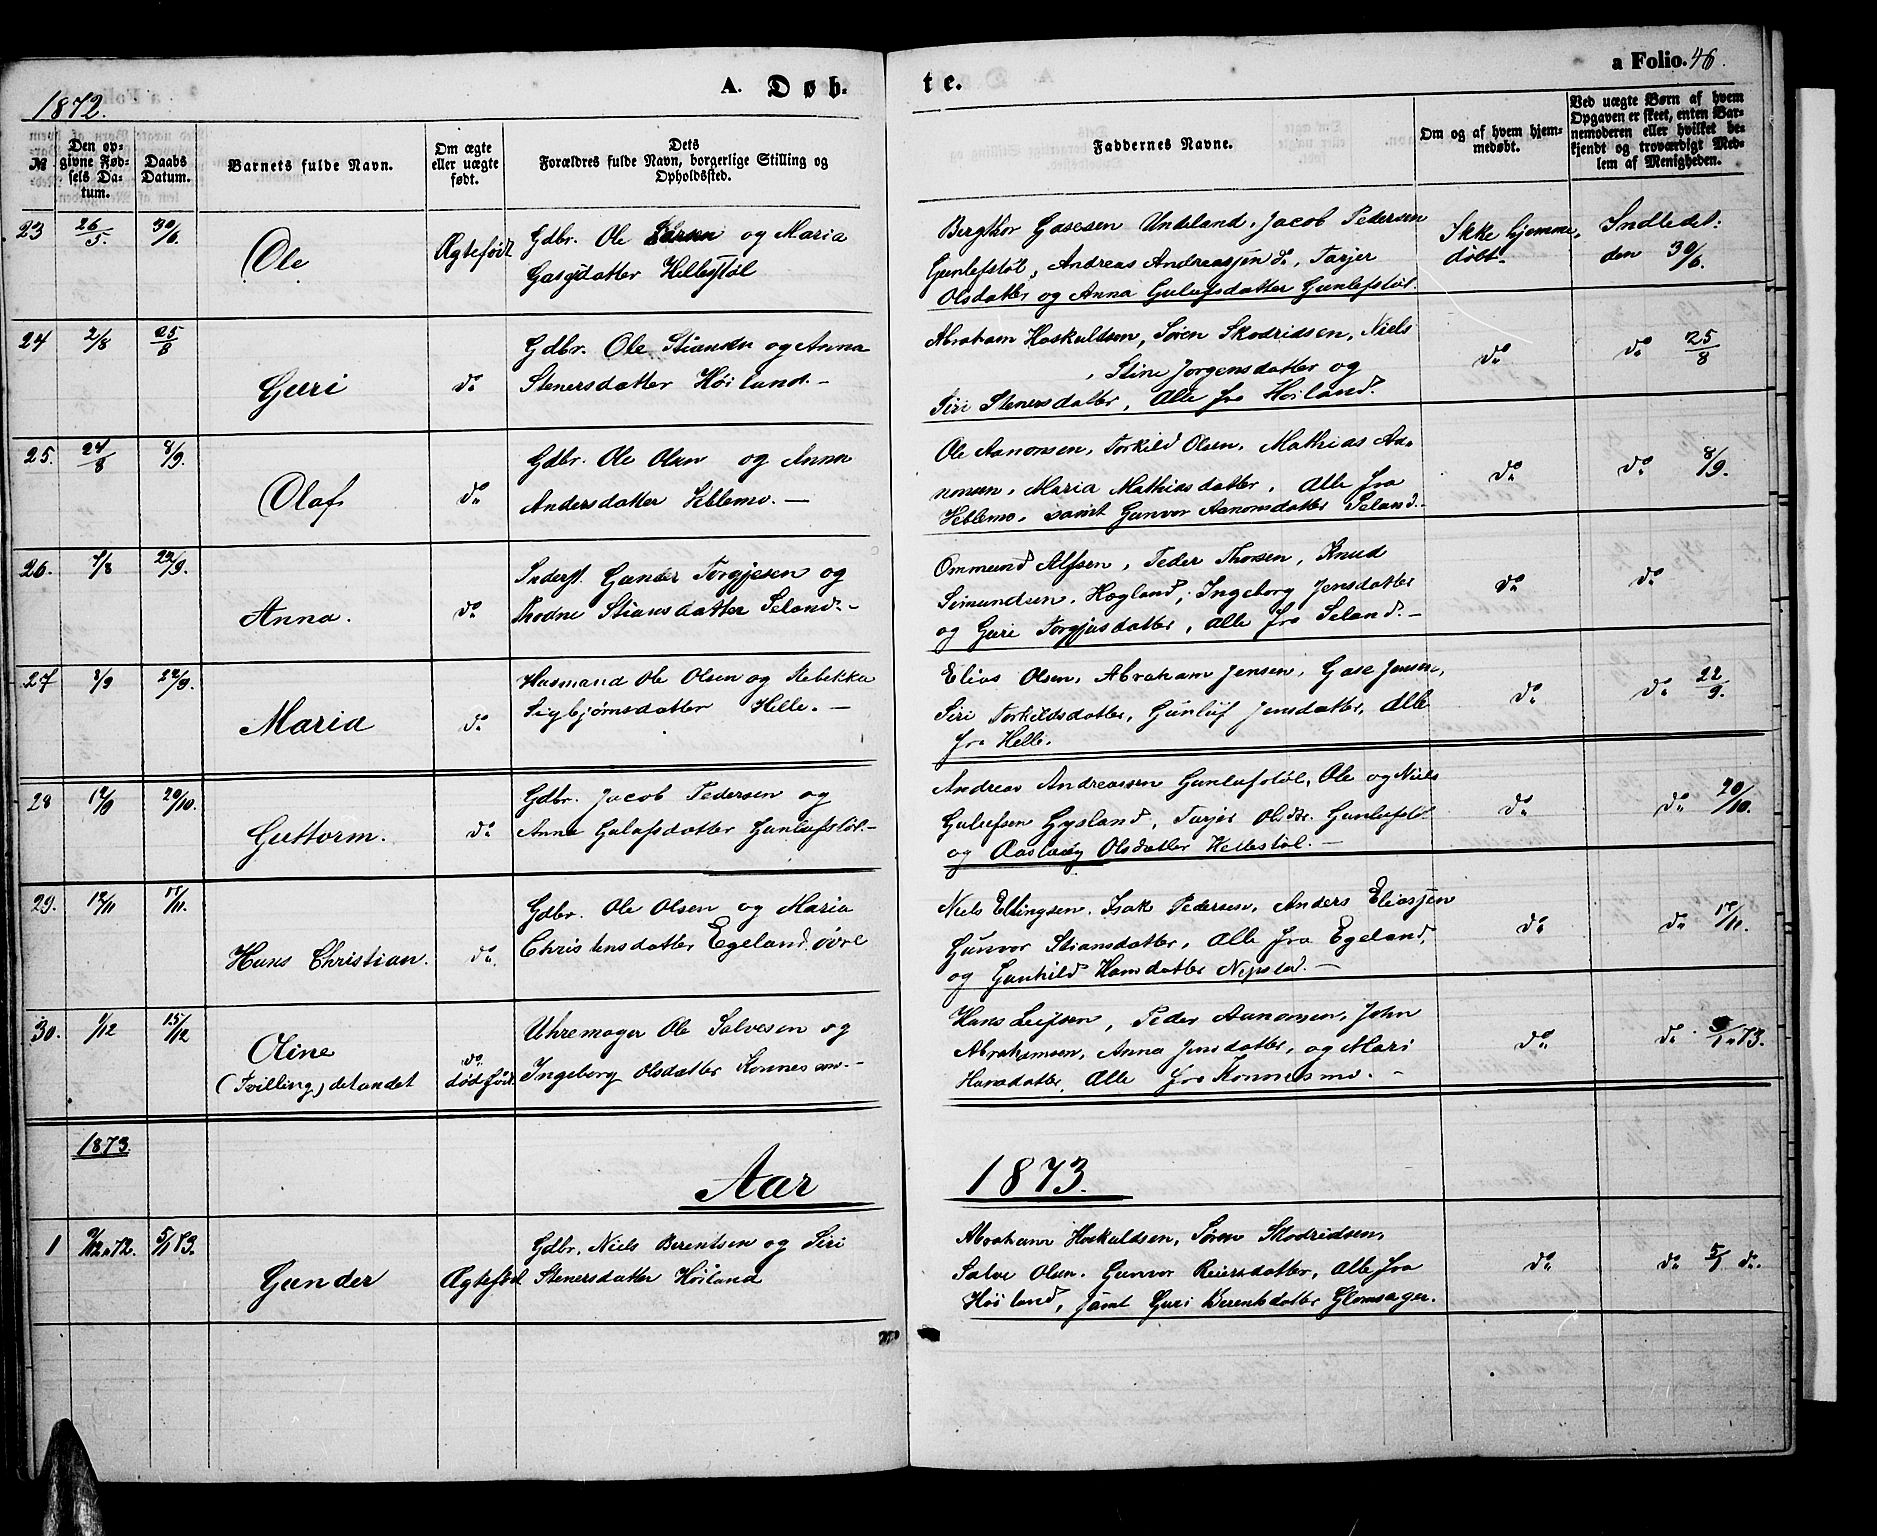 1872.
A. Døb-
te.
a Folio. 46.
№
Den op-
givne Fød-
sels Da-
tum.
Daabs
Datum.
Barnets fulde Navn.
Om ægte
eller uægte
født.
Dets
Forældres fulde Navn, borgerlige Stilling og
Opholdssted.
Faddernes Navne.
Om og af hvem hjem-
medøbt.
Ved uægte Børn af hvem
Opgaven er skeet, enten Bar-
nemoderen eller hvilket be-
kjendt og troværdigt Med-
lem af Menigheden.
23 26/5. 30/6. Ole Ægtefødt
Gdbr. Ole Larsen og Maria
Gasesdatter Hellestøl
Bergthor Gasesen Undeland, Jacob Pedersen
Gunlefstøl, Andreas Andreassen do, Tarjer
Olsdatter og Anna Gulufsdatter Gunlefstøl.
Ikke hjemme-
døbt.
Indledet:
den 30/6.
24 2/8 25/8 Guri do
Gdbr. Ole Stiansen og Anna
Stenersdatter Høiland.-
Abraham Hoskuldsen, Søren Skodridsen, Niels
, Stine Jørgensdatter og
Siri Stenersdatter, Alle fra Høiland.
do
do 25/8
25. 24/8 8/9. Olaf do
Gdbr. Ole Olsen og Anna
Andersdatter Heblemo.-
Ole Aanonsen, Torkild Olsen, Mathias Aa-
nonsen, Maria Mathiasdatter, Alle fra
Heblemo, samt Gunvor Aanonsdatter Seland.
do
do 8/9.
26. 7/8 22/9. Anna. do
Inderst. Gunder Torgjesen og
Thodne Stiansdatter Seland.-
Ommund Alfsen, Peder Thorsen, Knud
Simundsen, Hægland, Ingeborg Jensdatter
og Guri Torgjusdatter, Alle fra Seland.-
do
do
27 8/9 22/9. Maria do
Husmand Ole Olsen og Rebekka
Sigbjørnsdatter Helle.-
Elias Olsen, Abraham Jensen, Gase Jensen,
Siri Torkildsdatter, Gunluf Jensdatter, Alle
fra Helle.
do
do 22/9.
28 12/9 20/10. Guttorm. do
Gdbr. Jacob Pedersen og
Anna Gulufsdatter Gunlufstøl.-
Andreas Andreassen Gunlufstøl, Ole og Niels
Gulufsen Gysland, Tarjer Olsdtr. Gunlufst.
og Aaslaug Olsdatter Hellestøl.-
do
do 20/10.
29. 12/11 17/11. Hans Christian. do.
Gdbr. Ole Olsen og Maria
Christensdatter Egeland, øvre
Niels Ellingsen, Isak Pedersen, Anders Eliassen
Gunvor Stiansdatter, Alle fra Egeland,
og Gunhild Hansdatter Nepstad.-
do
do 17/11.
30. 1/12 15/12 Oline
(Tvilling) det andet
do
dødfød.
Uhrmager Ole Salvesen og
Ingeborg Olsdatter Konnesmo.-
Hans Leifsen, Peder Aanonsen, John
Abrahamsen, Anna Jensdatter, og Mari
Hansdatter, Alle fra Konnesmo.-
do
do 5/1 73.
1873.
Aar 1873.
1 9/12 72. 5/1 73. Gunder Ægtefød
Gdbr. Niels Berentsen og Siri
Stenersdatter Høiland
Abraham Hoskuldsen, Søren Skodridsen,
Salve Olsen, Gunvor Reiersdatter, Alle fra
Høiland, samt Guri Berentsdatter Glomsager.
do
do 5/1 do.